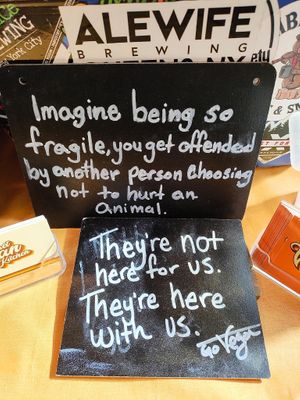 ALEWIFE
BREWING
QUEENS, NY
Imagine being so
fragile, you get offended
by another person Choosing
not to hurt an
Animal.
They're not
here for us.
They're here
with us.
Go Vegan
Kitchen